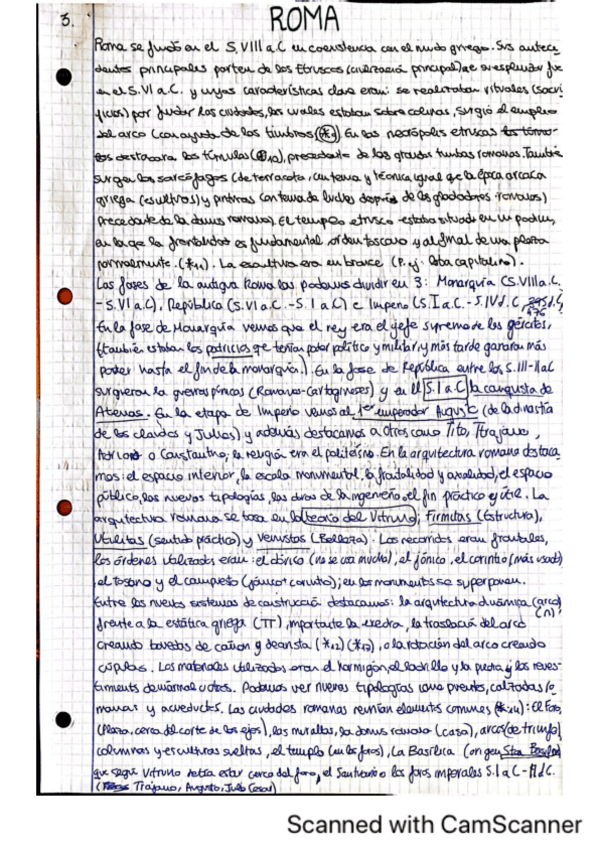 3. ROMA
Roma se fundó en el S.VIII a.C en coexistencia con el mundo griego. Sus antece
dentes principales parten de los Etruscos (civilización principal) que su esplendor fue
en el S.VI a.C. y cuyas características clave eran: se realizaban rituales (sacri
ficios) por fundar las ciudades, las cuales estaban sobre colinas, surgió el empleo
del arco (con ayuda de los timbros (*9) En las necrópolis etruscas
destacara los túmulos (*10), precedente de las grandes tumbas romanas. También
surgen los sarcófagos (de terracota, con tema y técnica igual que la época arcaca
griega (esculturas) y pinturas con tema de luchas después de los gladiadores romanos)
precedente de la domus romana). El templo etrusco estaba situado en un podium,
en la que la frontalidad es fundamental, orden toscano y al final de una plaza
normalmente. (*11). La escultura era en bronce (P. ej: loba capitolina).
Las fases de la antigua Roma las podemos dividir en 3: Monarquía (S.VIII a.C.
-S.VI a.C), República (S.VI a.C. - S.I a.C) e Imperio (S.I a.C. - S.IV d.C, 476
En la fase de Monarquía vemos que el rey era el jefe supremo de los ejércitos,
(también estaban los patricios que tenían poder político y militar, y más tarde ganaran más
poder hasta el fin de la monarquía). En la fase de República entre los S.III-II aC
surgieron la guerras púnicas (Romanos-Cartagineses) y en el S.I a C la conquista de
Atenas. En la etapa de Imperio vemos al 1er emperador Augusto (de la dinastía
de los claudios y Julios) y además destacamos a otros como Tito, Trajano,
Adriano o Constantino; la religión era el politeísmo. En la arquitectura romana destaca
mos: el espacio interior, la escala monumental, la frontalidad y axialidad, el espacio
público, las nuevas tipologías, las obras de la ingeniería, el fin práctico y útil. La
arquitectura romana se basa en la teoría del Vitruvio; Firmitas (Estructura),
Utilitas (sentido práctico) y Venustas (Belleza). Los recorridos eran frontales,
los órdenes utilizados eran: el dórico (no se usa mucho), el jónico, el corintio (más usado)
el toscano y el compuesto (jónico+corintio); en los monumentos se superponen.
Entre los nuevos sistemas de construcción destacamos: la arquitectura dinámica (arco)
frente a la estática griega (TT), importante la exedra, la traslación del arco (∩)
creando bovedas de cañon y de arista (*12) (*13), o la rotación del arco creando
cúpulas. Los materiales utilizados eran el hormigón, el ladrillo y la piedra y los reves-
timientos de mármol u otros. Podemos ver nuevas tipologías como puentes, calzadas ro
manas y acueductos. Las ciudades romanas reunían elementos comunes (*14): El Foro,
(Plaza, cerca del corte de los ejes), las murallas, la domus romana (casa), arcos (de triunfo)
columnas y esculturas sueltas, el templo (en los foros), La Basílica (origen Stoa
que según Vitruvio debía estar cerca del foro, el Santuario o los foros imperiales S.I a C - II d.C.
(Trajano, Augusto, Julio Cesar)
Scanned with CamScanner